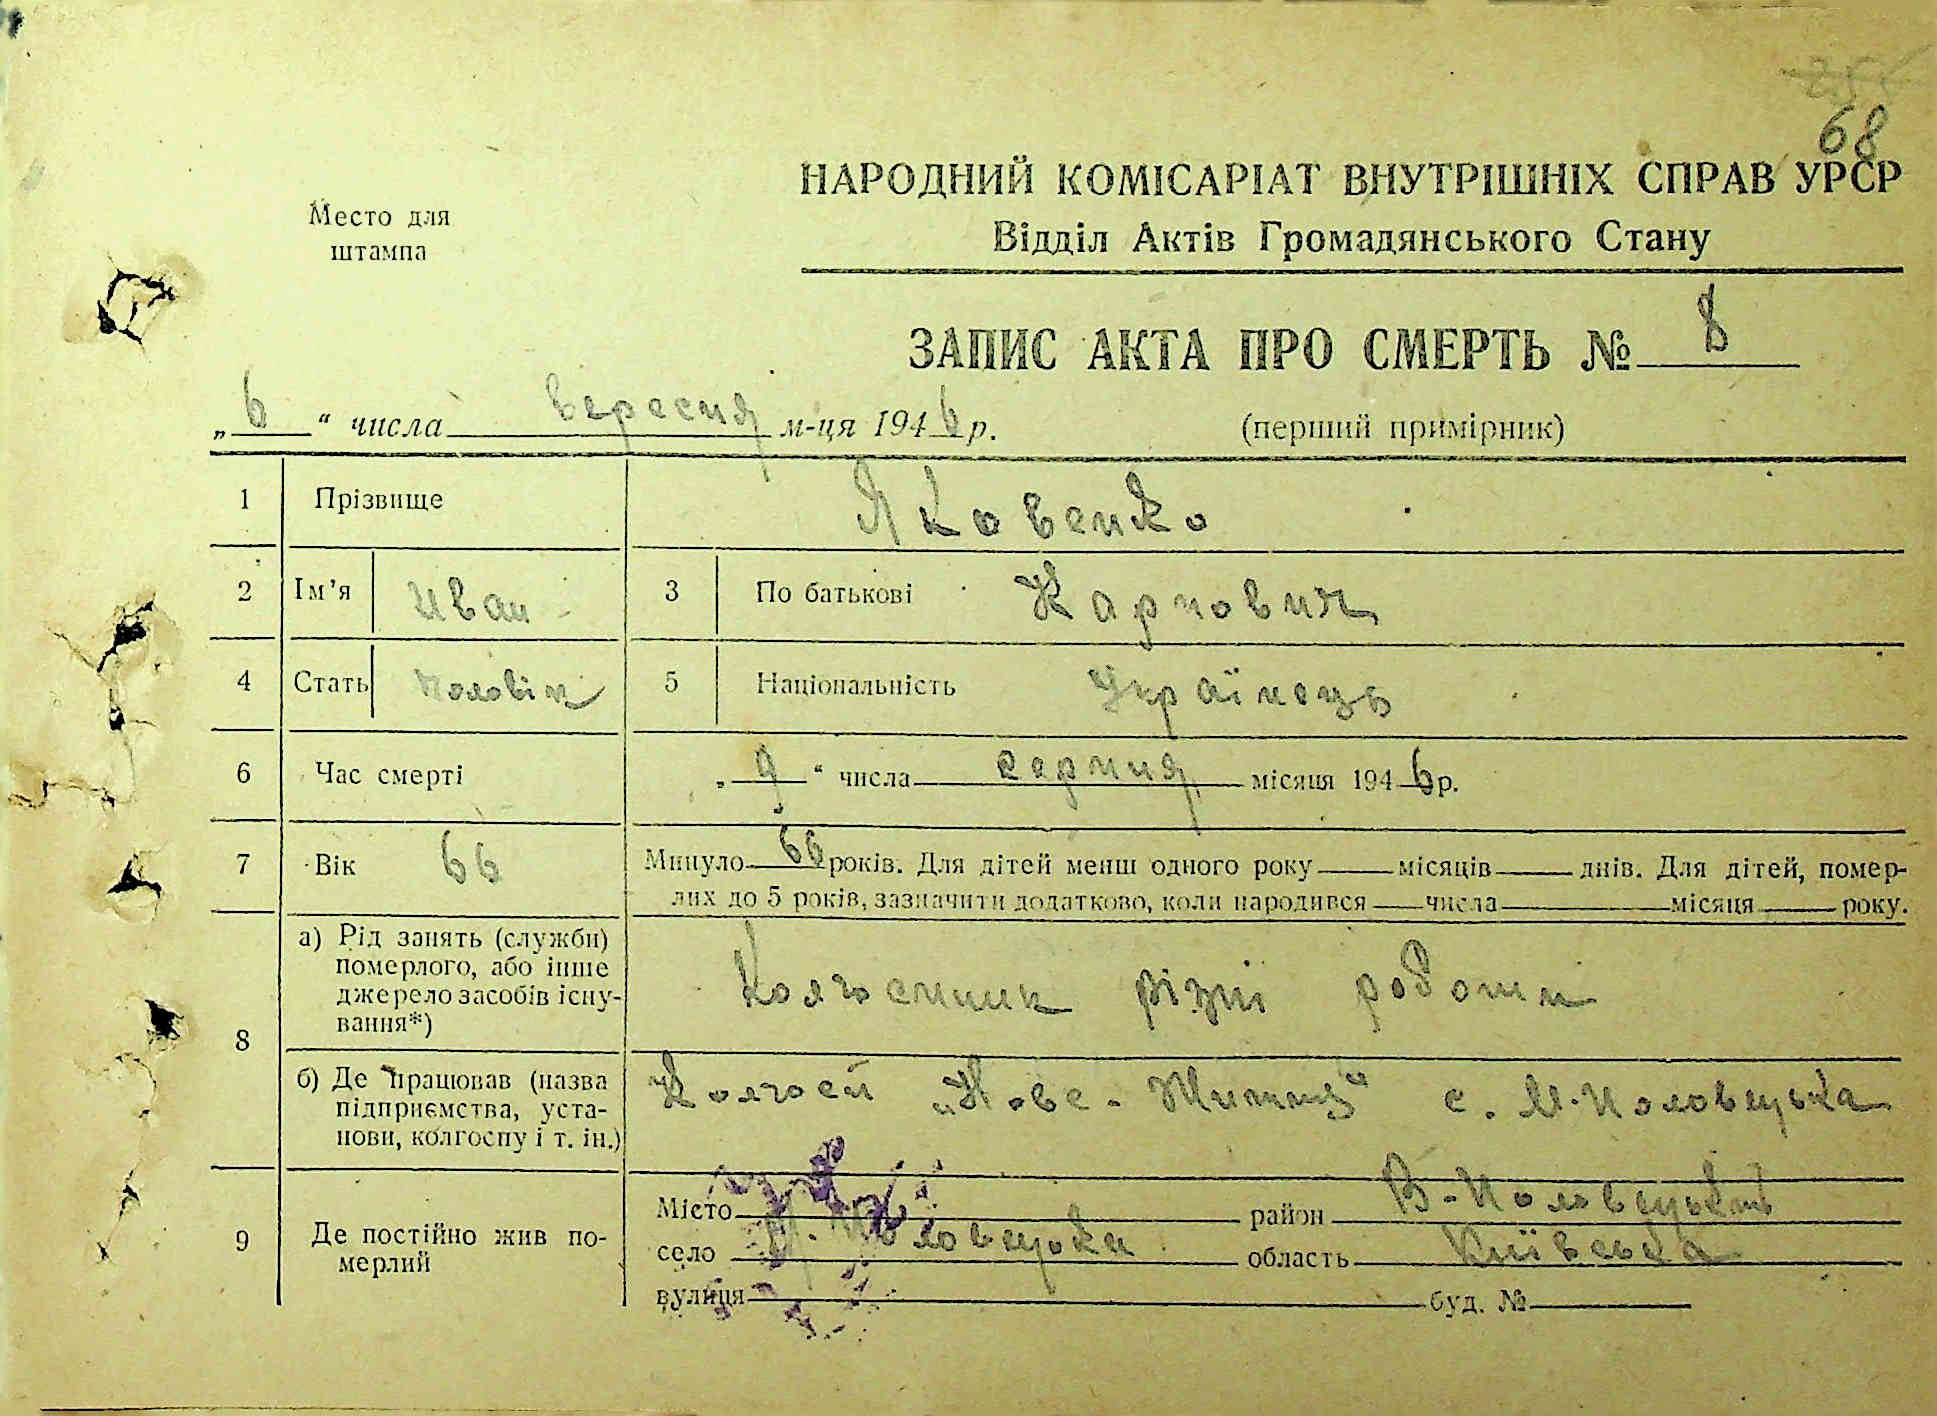 68
НАРОДНИЙ КОМІСАРІАТ ВНУТРІШНІХ СПРАВ УРСР
Место для
штампа
Відділ Актів Громадянського Стану
ЗАПИС АКТА ПРО СМЕРТЬ № 8
„6“ числа вересня м-ця 1946 р.
(перший примірник)
1 Прізвище Яковенко
2 Ім'я Иван 3 По батькові Карпович
4 Стать Половік 5 Національність Українець
6 Час смерті „9“ числа серпня місяця 1946 р.
7 Вік 66 Минуло 66 років. Для дітей менш одного року місяців днів. Для дітей, помер-
лих до 5 років, зазначити додатково, коли народився числа місяця року.
8 а) Рід занять (служби)
померлого, або інше
джерело засобів існу-
вання*)
Колгоспник різні роботи
б) Де працював (назва
підприємства, уста-
нови, колгоспу і т. ін.)
Колгосп „Нове-Життя“ с. М-Половецька
9 Де постійно жив по-
мерлий
Місто район В-Половецький
село М. Половецьке область Київська
вулиця буд. №